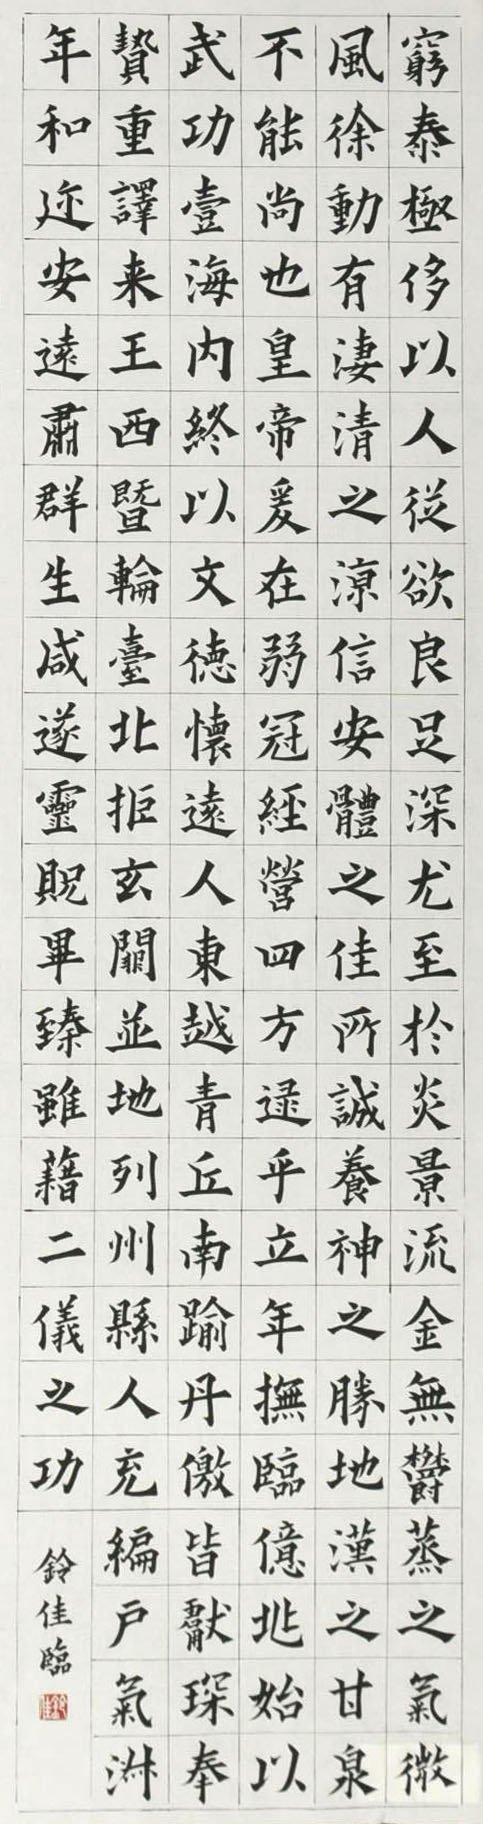 窮泰極侈以人從欲良足深尤至於炎景流金無鬱蒸之氣微
風徐動有淒清之涼信安體之佳所誠養神之勝地漢之甘泉
不能尚也皇帝爰在弱冠經營四方逯乎立年撫臨億兆始以
武功壹海内終以文德懷遠人東越青丘南踰丹儌皆獻琛奉
贄重譯来王西暨輪臺北拒玄闕並地列州縣人充編戶氣淋
年和迩安遠肅群生咸遂靈貺畢臻雖藉二儀之功
鈴佳臨